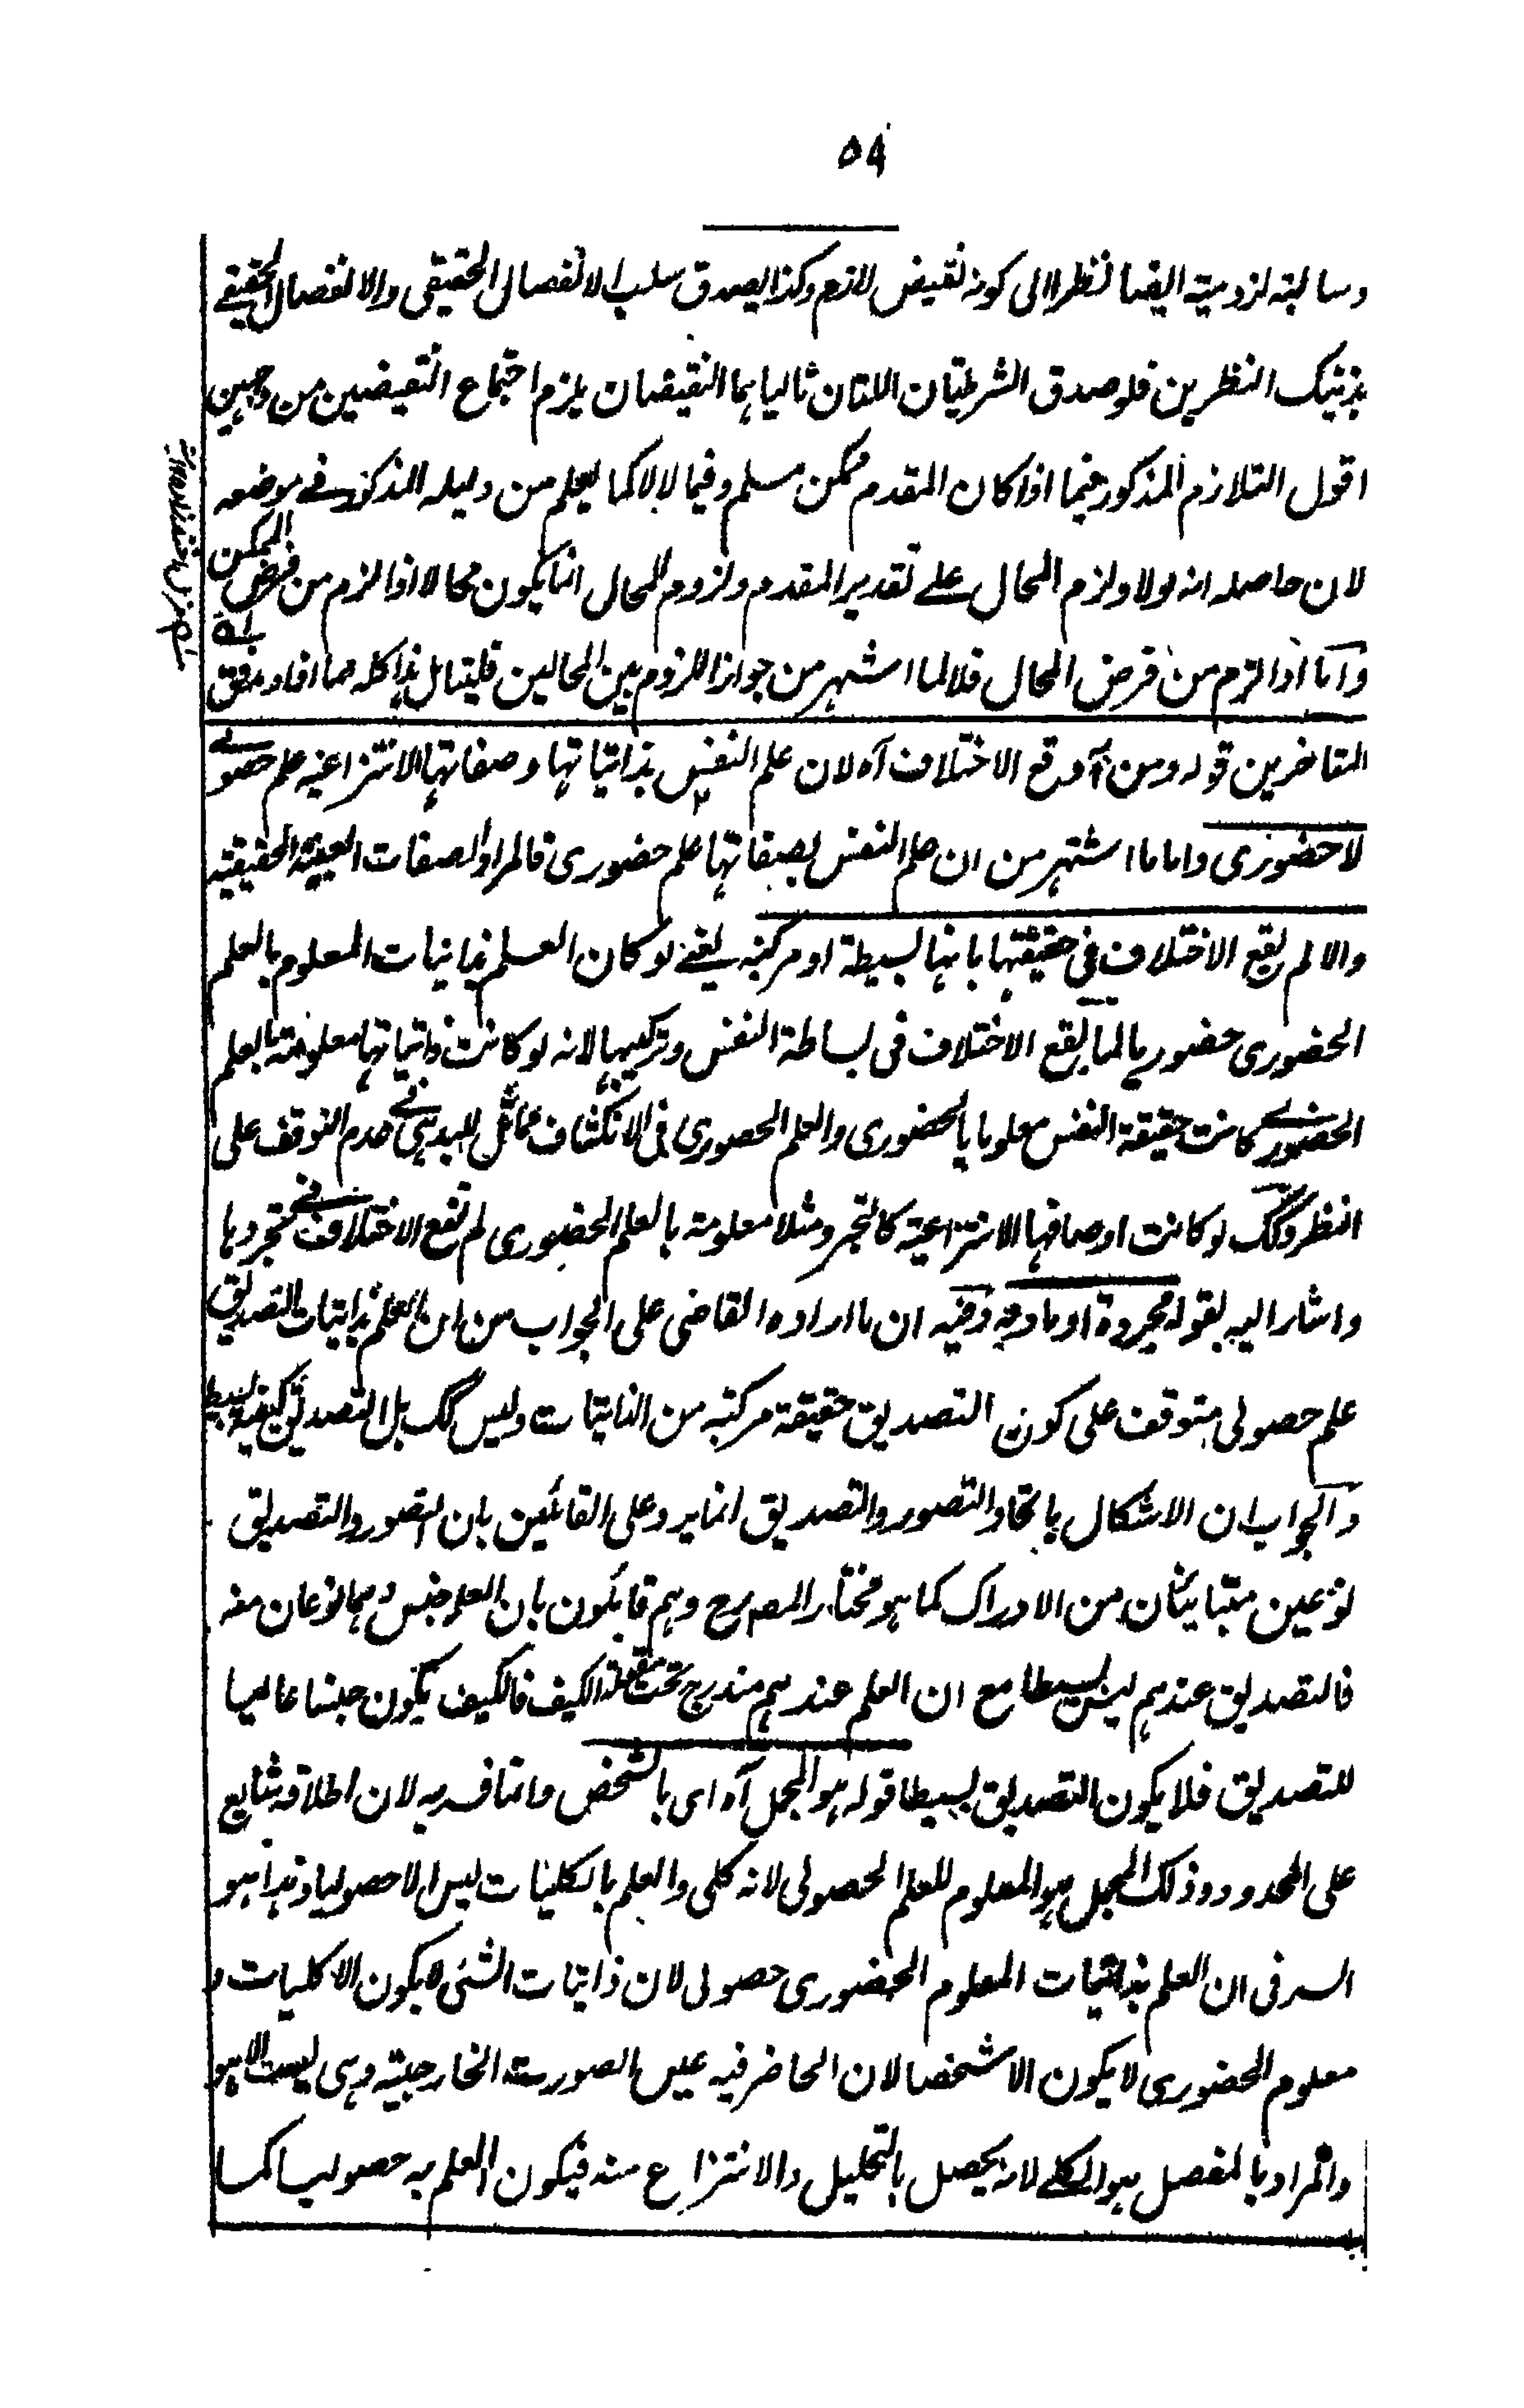 ٥٩
وسالبة لزومية ايضا نظرا الى كونه نقيض لازم وكذا يصدق سلب الانفصال الحقيقى والانفصال الحقيقے
بذينك النظرين فلو صدق الشرطيتان اللتان تالياهما النقيضان يلزم اجتماع النقيضين من وجهين
اقول التلازم المذكور فيما اذا كان المقدم ممكن مسلم وفيما لا لا كما يعلم من دليله المذكور فے موضعه
لان حاصله انه لولا ولزم المحال علے تقدير المقدم ولزوم المحال انما يكون محالا اذا لزم من فرض الممكن
واما اذا لزم من فرض المحال فلا لما اشتهر من جواز اللزوم بين المحالين فليتامل هذا كله مما افاد محقق
المتاخرين قوله ومن ثم وقع الاختلاف آه لان علم النفس بذاتياتها وصفاتها الانتزاعية علم حصولے
لا حضورى واما ما اشتهر من ان علم النفس بصفاتها علم حضورى فالمراد الصفات العينية الحقيقية
والا لم يقع الاختلاف فى حقيقتها بانها بسيطة او مركبة يعنے لو كان العلم بذاتيات المعلوم بالعلم
الحضورى حضوريا لما يقع الاختلاف فى بساطة النفس وتركيبها لانه لو كانت ذاتياتها معلومة بالعلم
الحضورے كانت حقيقة النفس معلوما بالحضورى والعلم الحصورى فى الانكشاف مماثل للبديهى فے عدم التوقف على
النظر وكك لو كانت اوصافها الانتزاعية كالتجرد مثلا معلومة بالعلم الحضورى لم تقع الاختلاف فے تجردها
واشار اليه بقوله مجردة او مادية وفيه ان ما اراده القاضى على الجواب من ان العلم بذاتيات التصديق
علم حصولى متوقف على كون التصديق حقيقة مركبة من الذاتيات وليس كك بل التصديق كيفية بسيط
والجواب ان الاشكال باتحاد التصور والتصديق انما يرد على القائلين بان التصور والتصديق
نوعين متباينان من الادراك كما هو مختار المصه رح وهم قايلون بان العلم جنس وهما نوعان منه
فالتصديق عندهم ليس بسيطا مع ان العلم عندهم مندرج تحت مقولة الكيف فالكيف يكون جنسا عاليا
للتصديق فلا يكون التصديق بسيطا قوله هو المجمل آه اى بالشخص وانما فسر به لان اطلاقه شايع
على المحدود وذلك المجمل هو المعلوم للعلم الحصولى لانه كلى والعلم بالكليات ليس الا حصوليا وهذا هو
السر فى ان العلم بذاتيات المعلوم الحضورى حصولى لان ذاتيات الشئ لا يكون الا كليات و
معلوم الحضورى لا يكون الا شخصا لان الحاضر فيه عين الصورة الخارجية وهى ليست الا هو
والمراد بالمفصل هو الكلے لانه يحصل بالتحليل والانتزاع منه فيكون العلم به حصوليا كما